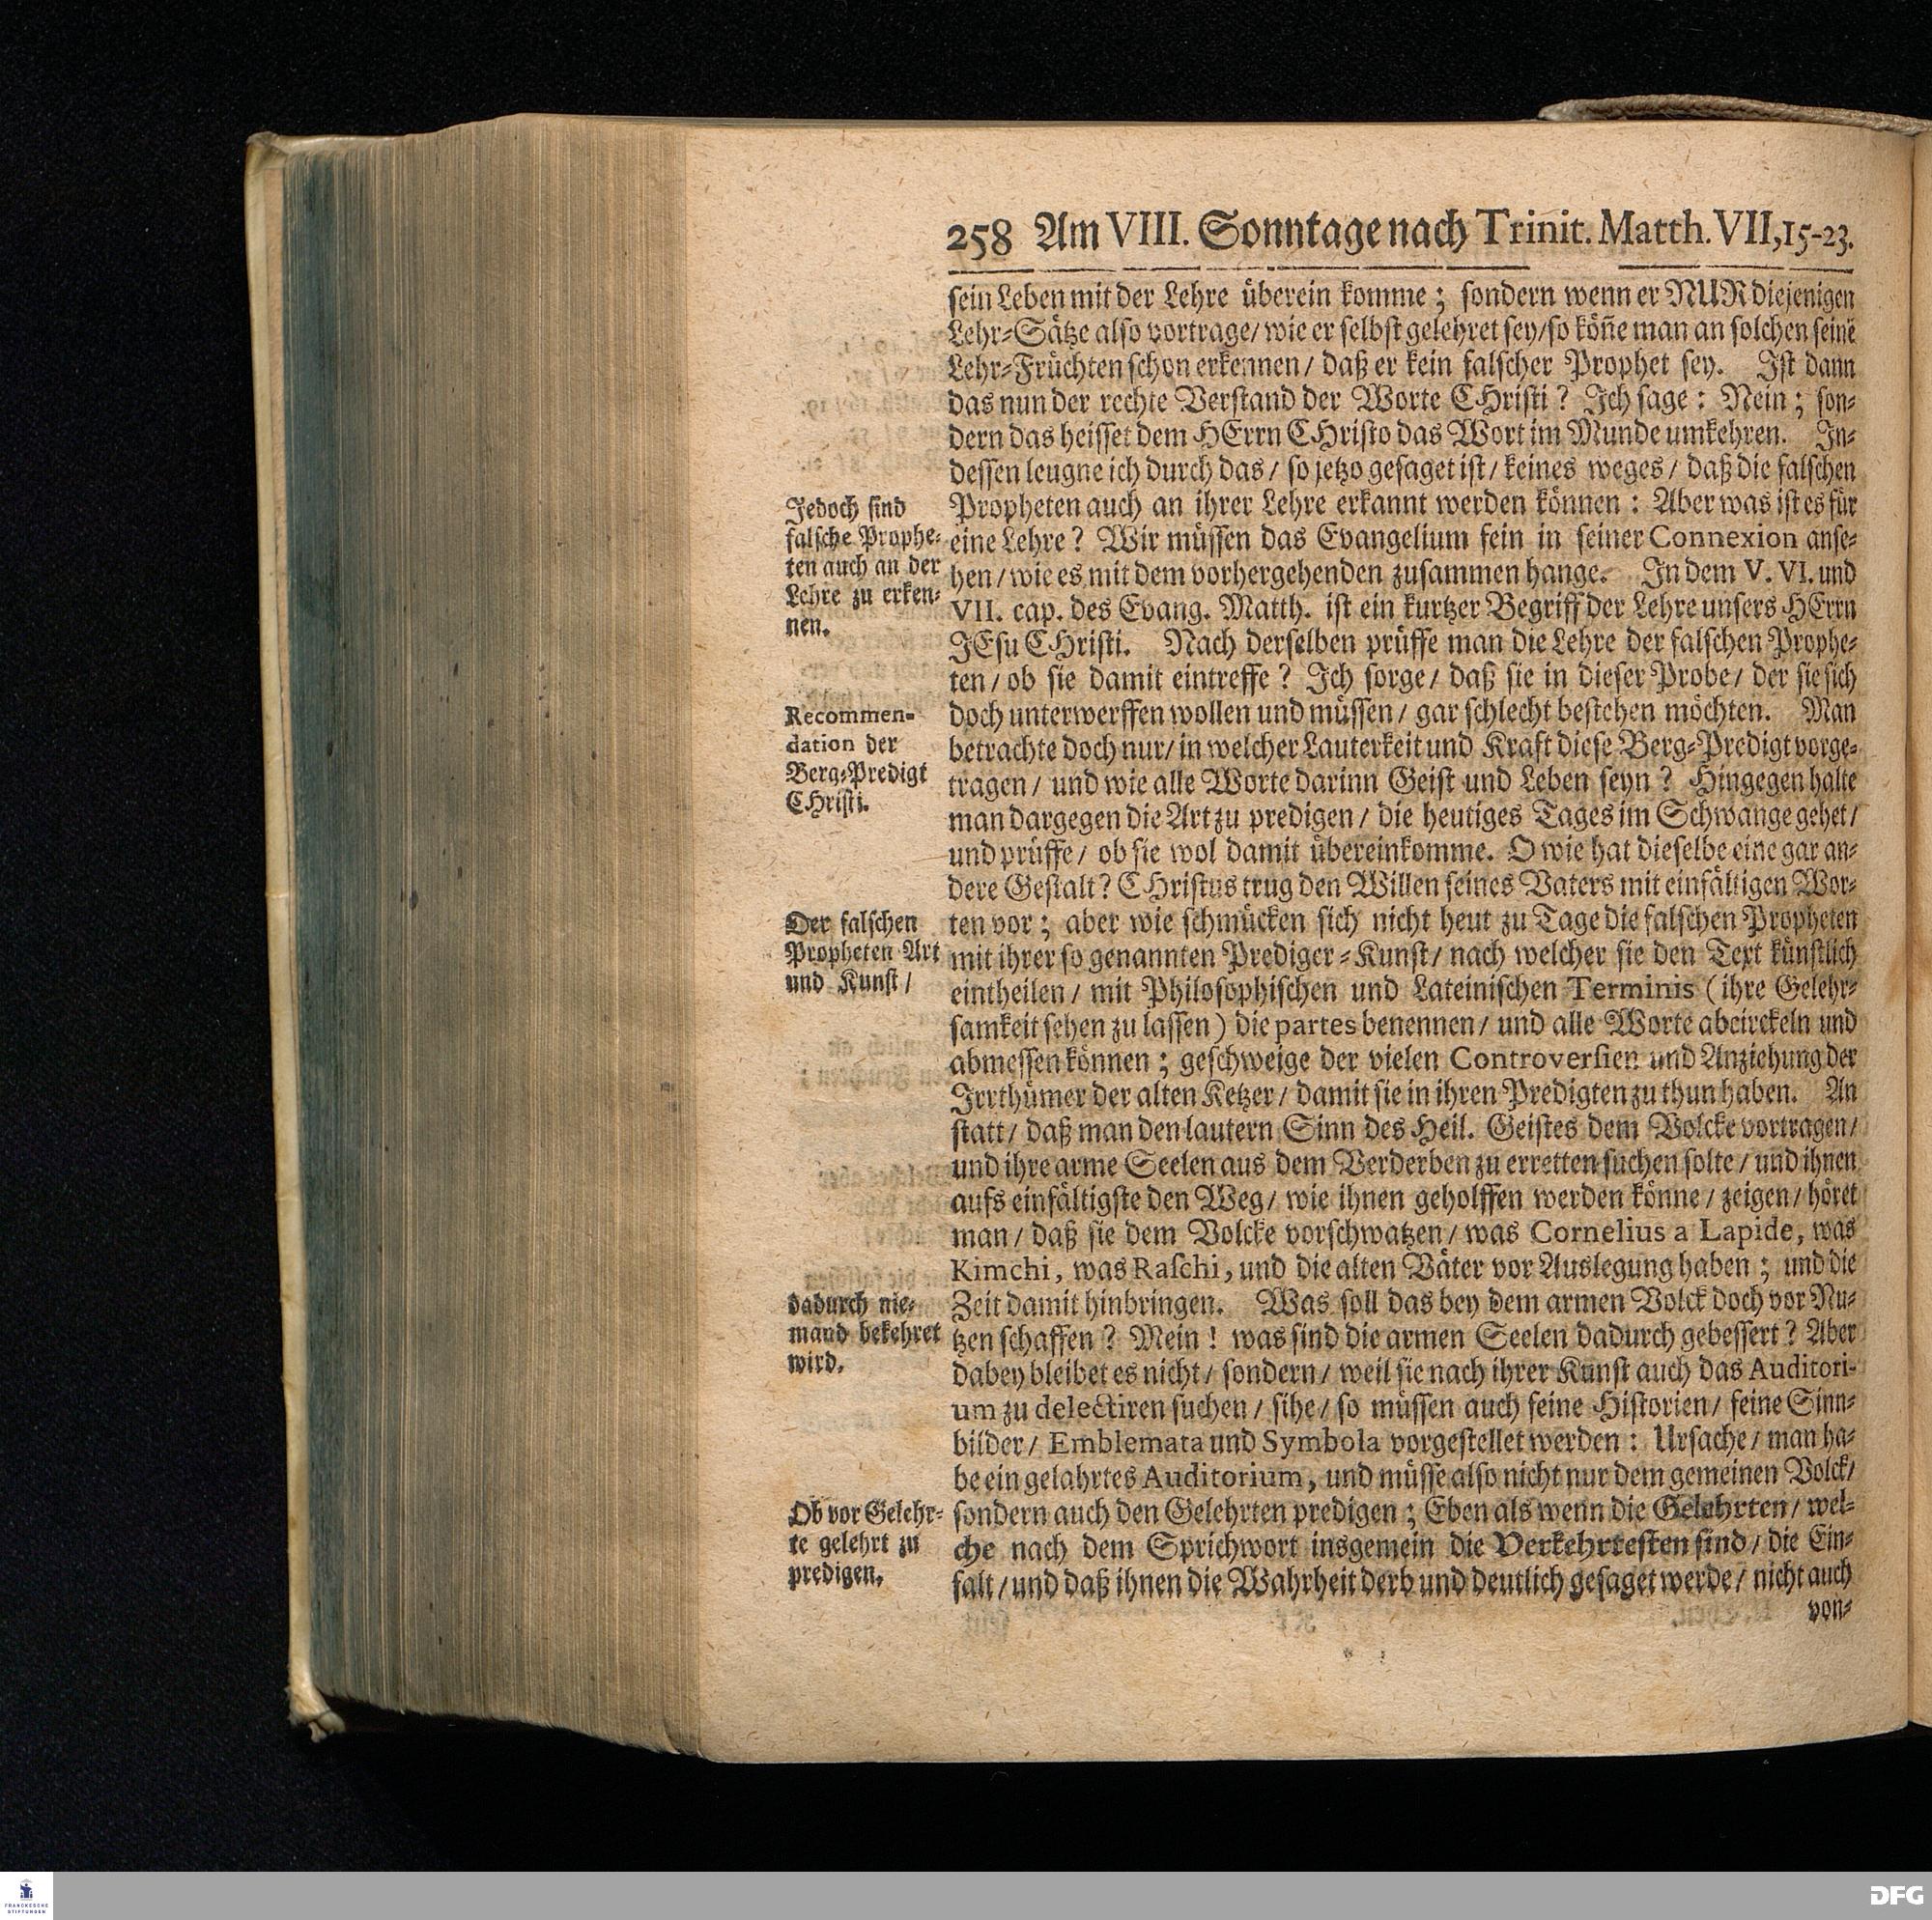 258 Am VIII. Sonntage nach Trinit. Matth. VII, 15-23.
sein Leben mit der Lehre überein komme; sondern wenn er NUR diejenigen
Lehr-Sätze also vortrage/ wie er selbst gelehret sey/ so köñe man an solchen seinē
Lehr-Früchten schon erkennen/ daß er kein falscher Prophet sey. Ist dann
das nun der rechte Verstand der Worte CHristi? Ich sage: Nein; son-
dern das heisset dem HErrn CHristo das Wort im Munde umkehren. In-
dessen leugne ich durch das/ so jetzo gesaget ist/ keines weges/ daß die falschen
Propheten auch an ihrer Lehre erkannt werden können: Aber was ist es für
eine Lehre? Wir müssen das Evangelium fein in seiner Connexion anse-
hen/ wie es mit dem vorhergehenden zusammen hange. In dem V. VI. und
VII. cap. des Evang. Matth. ist ein kurtzer Begriff der Lehre unsers HErrn
JEsu CHristi. Nach derselben prüffe man die Lehre der falschen Prophe-
ten/ ob sie damit eintreffe? Ich sorge/ daß sie in dieser Probe/ der sie sich
doch unterwerffen wollen und müssen/ gar schlecht bestehen möchten. Man
betrachte doch nur/ in welcher Lauterkeit und Kraft diese Berg-Predigt vorge-
tragen/ und wie alle Worte darinn Geist und Leben seyn? Hingegen halte
man dargegen die Art zu predigen/ die heutiges Tages im Schwange gehet/
und prüffe/ ob sie wol damit übereinkomme. O wie hat dieselbe eine gar an-
dere Gestalt? CHristus trug den Willen seines Vaters mit einfältigen Wor-
ten vor; aber wie schmücken sich nicht heut zu Tage die falschen Propheten
mit ihrer so genannten Prediger-Kunst/ nach welcher sie den Text künstlich
eintheilen/ mit Philosophischen und Lateinischen Terminis (ihre Gelehr-
samkeit sehen zu lassen) die partes benennen/ und alle Worte abcirckeln und
abmessen können; geschweige der vielen Controversien und Anziehung der
Irrthümer der alten Ketzer/ damit sie in ihren Predigten zu thun haben. An
statt/ daß man den lautern Sinn des Heil. Geistes dem Volcke vortragen/
und ihre arme Seelen aus dem Verderben zu erretten suchen solte/ und ihnen
aufs einfältigste den Weg/ wie ihnen geholffen werden könne/ zeigen/ höret
man/ daß sie dem Volcke vorschwatzen/ was Cornelius a Lapide, was
Kimchi, was Raschi, und die alten Väter vor Auslegung haben; und die
Zeit damit hinbringen. Was soll das bey dem armen Volck doch vor Nu-
tzen schaffen? Mein! was sind die armen Seelen dadurch gebessert? Aber
dabey bleibet es nicht/ sondern/ weil sie nach ihrer Kunst auch das Auditori-
um zu delectiren suchen/ sihe/ so müssen auch feine Historien/ feine Sinn-
bilder/ Emblemata und Symbola vorgestellet werden: Ursache/ man ha-
be ein gelahrtes Auditorium, und müsse also nicht nur dem gemeinen Volck/
sondern auch den Gelehrten predigen; Eben als wenn die Gelehrten/ wel-
che nach dem Sprichwort insgemein die Verkehrtesten sind/ die Ein-
falt/ und daß ihnen die Wahrheit derb und deutlich gesaget werde/ nicht auch
von-
Jedoch sind
falsche Prophe-
ten auch an der
Lehre zu erken-
nen.
Recommen-
dation der
Berg-Predigt
CHristi.
Der falschen
Propheten Art
und Kunst/
dadurch nie-
mand bekehret
wird.
Ob vor Gelehr-
te gelehrt zu
predigen.
FRANCKESCHE
STIFTUNGEN
DFG